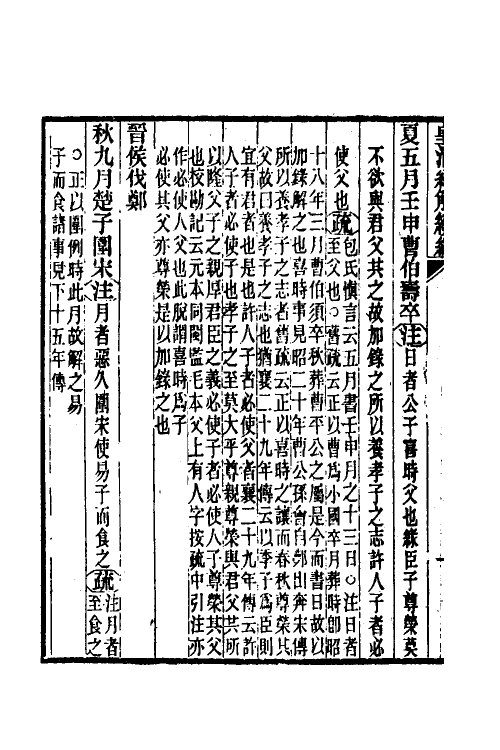 皇清經解續編
夏五月壬申曹伯壽卒注日者公子喜時父也緣臣子尊榮莫
不欲與君父共之故加錄之所以養孝子之志許人子者必
使父也疏包氏慎言云五月書壬申月之十三日○注日者
至父也○舊疏云正以曹爲小國卒月葬時卽昭
十八年三月曹伯須卒秋葬曹平公之屬是今而書日故以
加錄解之也喜時事見昭二十年曹公孫會自鄸出奔宋傳
所以養孝子之志者舊疏云正以喜時之讓而春秋尊榮其
父故曰養孝子之志也猶襄二十九年傳云以季子爲臣則
宜有君者也是也許人子者必使父者襄二十九年傳云許
人子者必使子也孝子之至莫大乎尊親尊榮與君父共所
以隆父子之親厚君臣之義必使子者必使人子尊榮其父
也按勘記云元本同閩監毛本父上有人字按疏中引注亦
作必使人父也此脫謂喜時爲子
必使其父亦尊榮是以加錄之也
晉侯伐鄭
秋九月楚子圍宋注月者惡久圍宋使易子而食之疏注月者
至食之
○正以圍例時此月故解之易
子而食諸事見下十五年傳